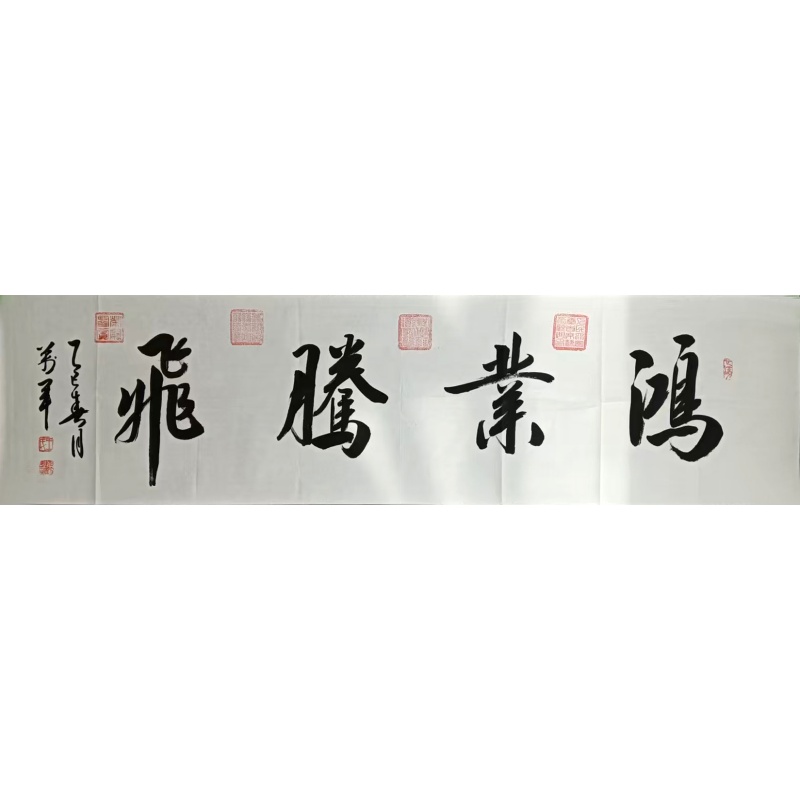 鴻業騰飛
乙巳春月
萬軍